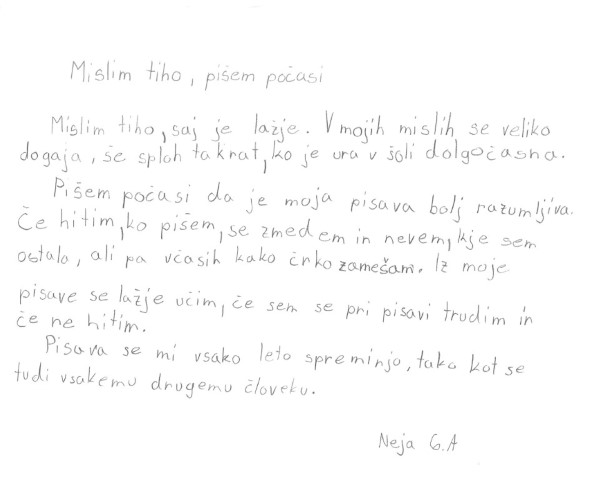 Mislim tiho, pišem počasi
Mislim tiho, saj je lažje. V mojih mislih se veliko
dogaja, še sploh takrat, ko je ura v šoli dolgočasna.
Pišem počasi da je moja pisava bolj razumljiva.
Če hitim, ko pišem, se zmedem in nevem, kje sem
ostala, ali pa včasih kako črko zamešam. Iz moje
pisave se lažje učim, če sem se pri pisavi trudim in
če ne hitim.
Pisava se mi vsako leto spreminja, tako kot se
tudi vsakemu drugemu človeku.
Neja G.A